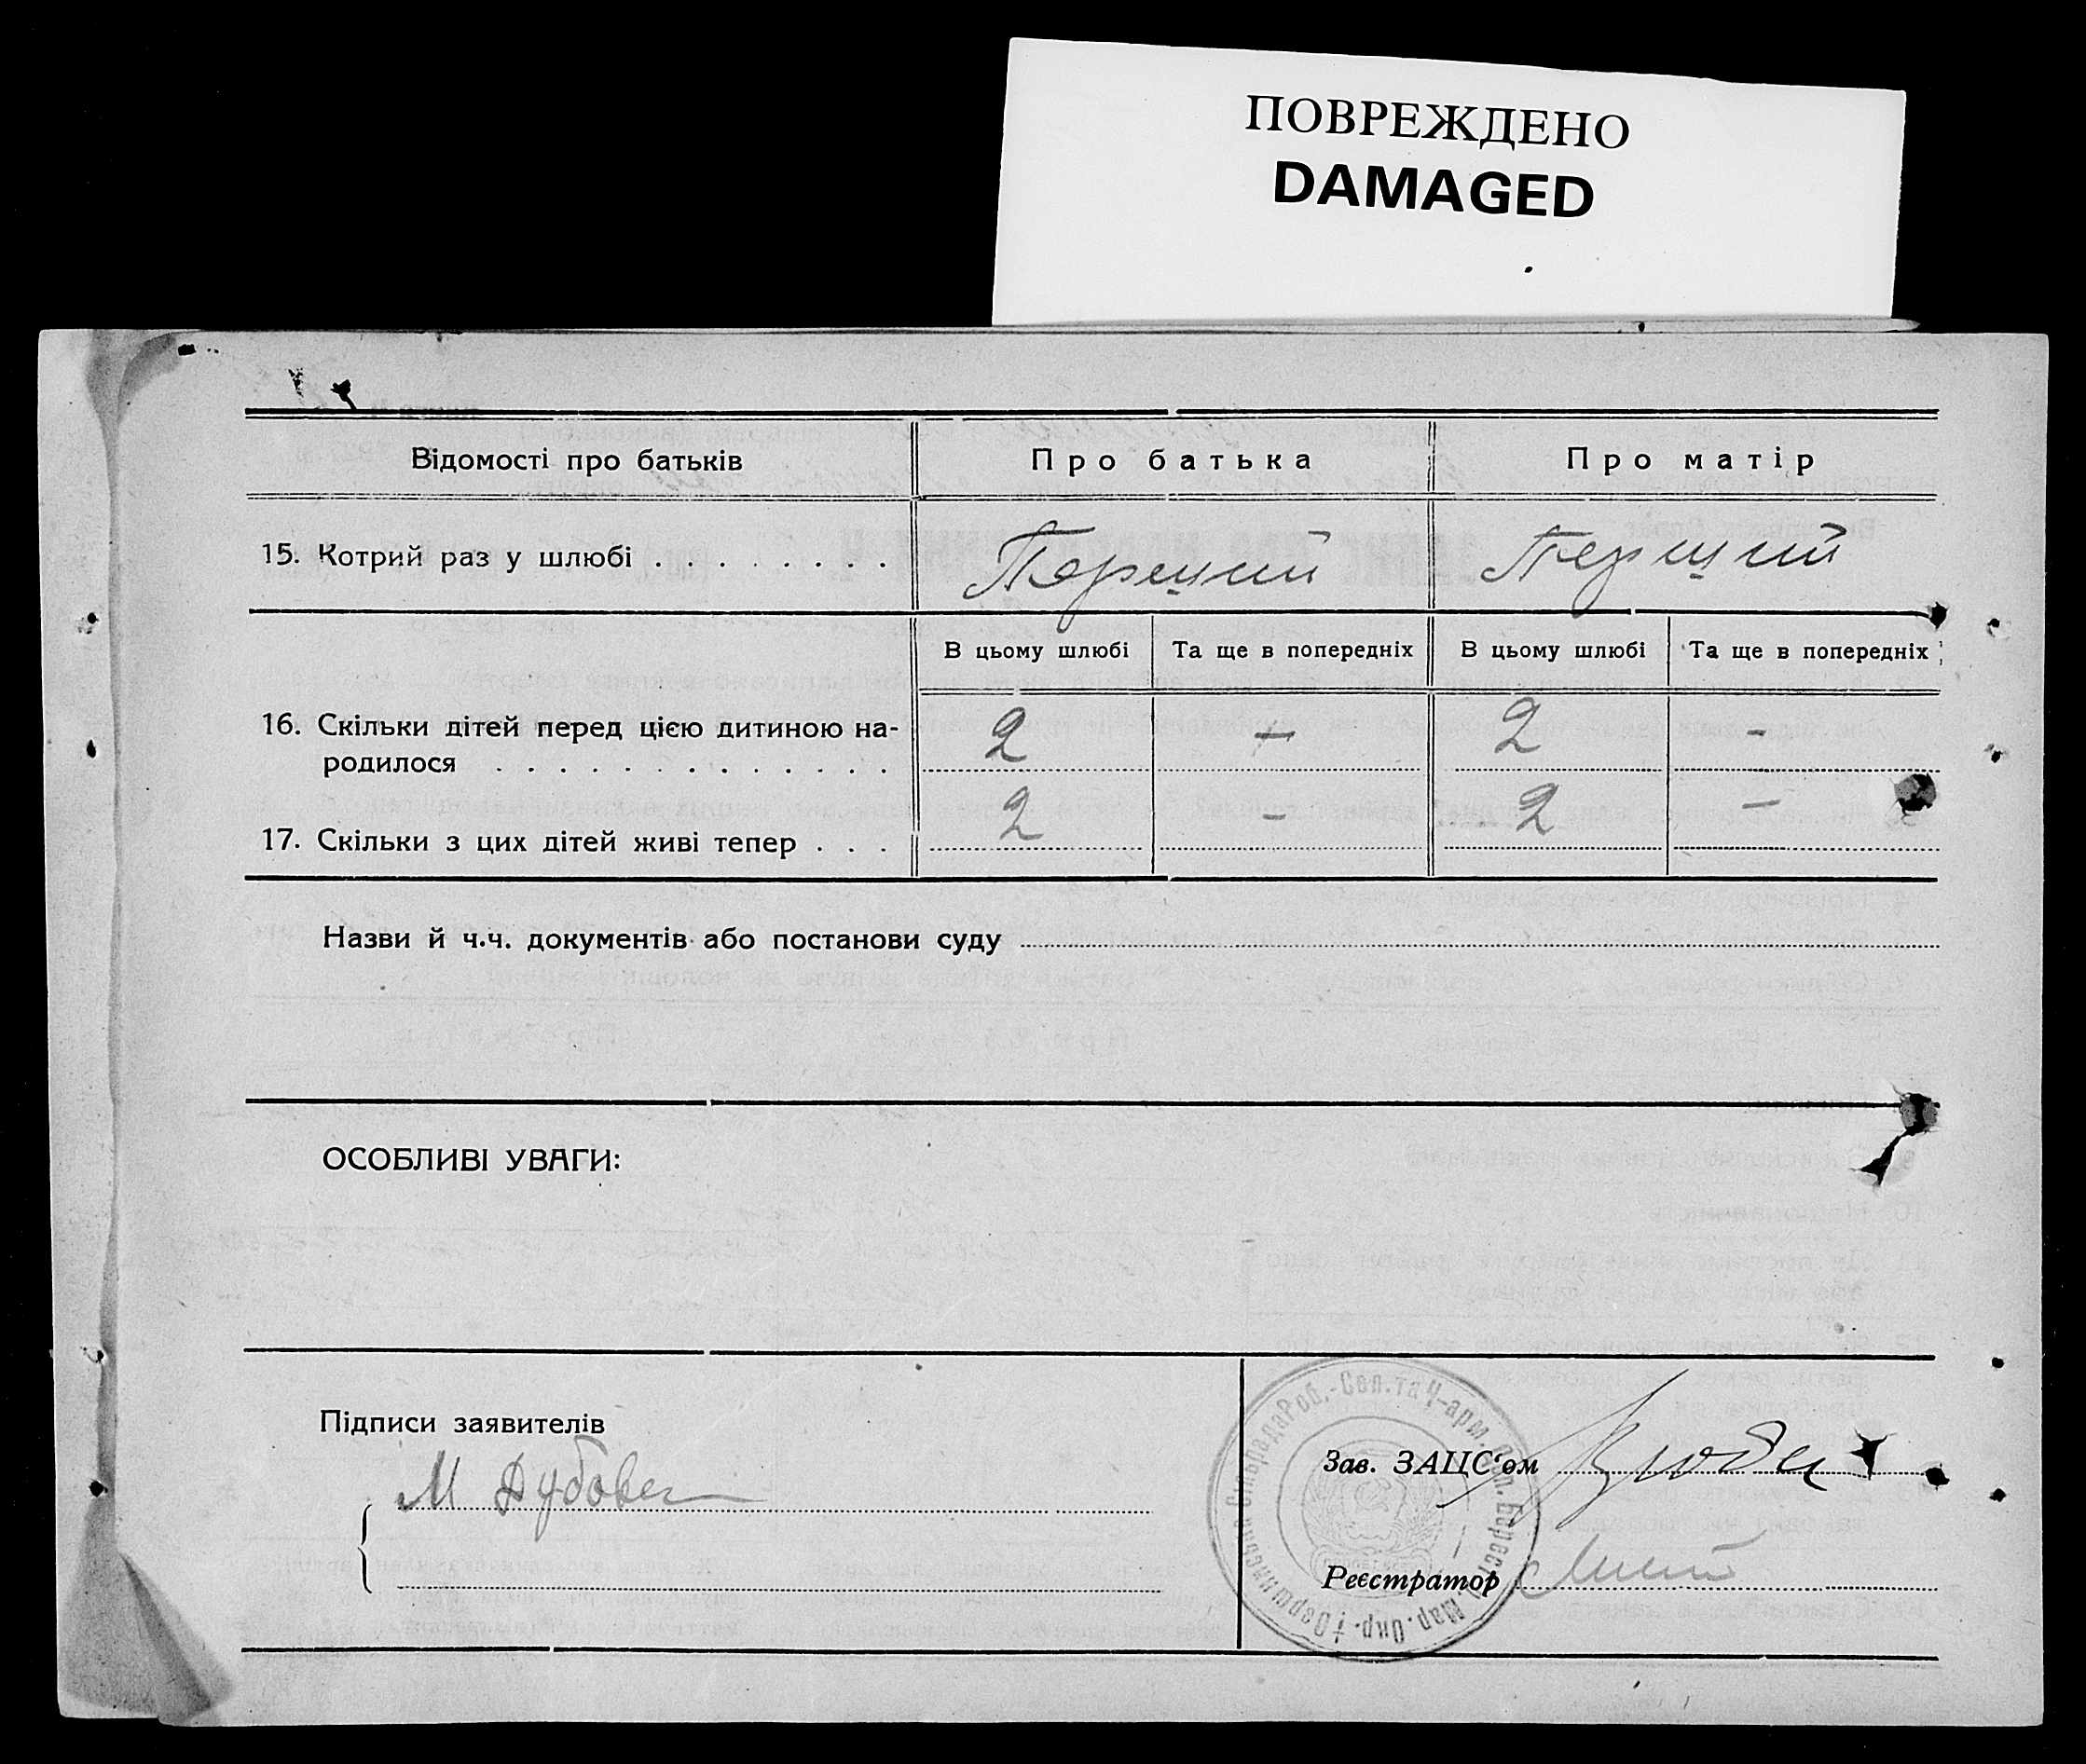 ПОВРЕЖДЕНО
DAMAGED
Відомості про батьків
Про батька
Про матір
15. Котрий раз у шлюбі . . . . . . . .
Перший
Перший
В цьому шлюбі
Та ще в попередніх
В цьому шлюбі
Та ще в попередніх
16. Скільки дітей перед цією дитиною на-
родилося . . . . . . . . . . . . .
2
-
2
-
17. Скільки з цих дітей живі тепер . . .
2
-
2
-
Назви й ч.ч. документів або постанови суду
ОСОБЛИВІ УВАГИ:
Підписи заявителів
М Дубовец
Зав. ЗАЦС'ом
Реєстратор
Сільрада Роб.-Сел. та Ч-арм. Деп. Мар. Окр.